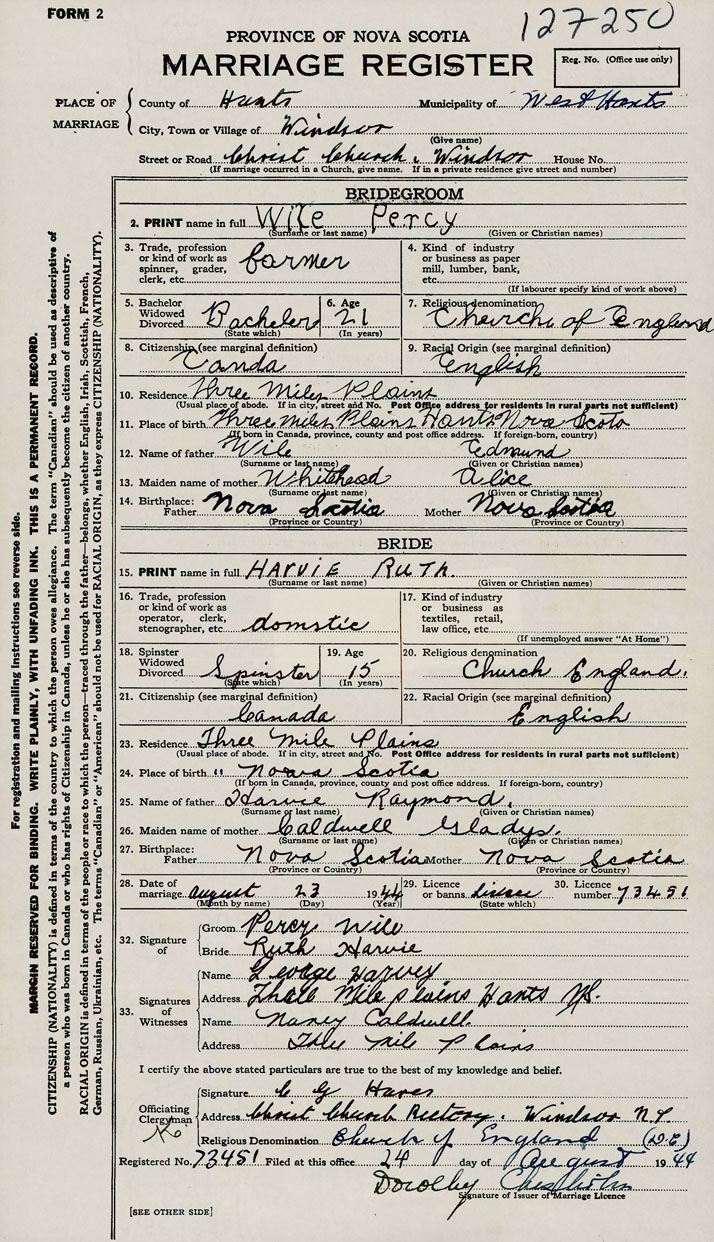 FORM 2
127250
PROVINCE OF NOVA SCOTIA
MARRIAGE REGISTER
Reg. No. (Office use only)
PLACE OF MARRIAGE
County of Hants Municipality of West Hants
City, Town or Village of Windsor
(Give name)
Street or Road Christ Church, Windsor House No.
(If marriage occurred in a Church, give name. If in a private residence give street and number)
BRIDEGROOM
2. PRINT name in full Wile Percy
(Surname or last name) (Given or Christian names)
3. Trade, profession or kind of work as spinner, grader, clerk, etc. farmer
4. Kind of industry or business as paper mill, lumber, bank, etc.
(If labourer specify kind of work above)
5. Bachelor Widowed Divorced Bachelor
(State which)
6. Age 21
(In years)
7. Religious denomination
Church of England
8. Citizenship (see marginal definition)
Canda
9. Racial Origin (see marginal definition)
English
10. Residence Three Miles Plains
(Usual place of abode. If in city, street and No. Post Office address for residents in rural parts not sufficient)
11. Place of birth Three Miles Plains Hants Nova Scoto
(If born in Canada, province, county and post office address. If foreign-born, country)
12. Name of father Wile Edmund
(Surname or last name) (Given or Christian names)
13. Maiden name of mother Whitehead Alice
(Surname or last name) (Given or Christian names)
14. Birthplace: Father Nova Scotia Mother Nova Scotia
(Province or Country) (Province or Country)
BRIDE
15. PRINT name in full HARVIE RUTH.
(Surname or last name) (Given or Christian names)
16. Trade, profession or kind of work as operator, clerk, stenographer, etc. domstic
17. Kind of industry or business as textiles, retail, law office, etc.
(If unemployed answer "At Home")
18. Spinster Widowed Divorced Spinster
(State which)
19. Age 15
(In years)
20. Religious denomination
Church England.
21. Citizenship (see marginal definition)
Canada
22. Racial Origin (see marginal definition)
English
23. Residence Three Mile Plains
(Usual place of abode. If in city, street and No. Post Office address for residents in rural parts not sufficient)
24. Place of birth " Nova Scotia
(If born in Canada, province, county and post office address. If foreign-born, country)
25. Name of father Harvie Raymond.
(Surname or last name) (Given or Christian names)
26. Maiden name of mother Caldwell Gladys.
(Surname or last name) (Given or Christian names)
27. Birthplace: Father Nova Scotia Mother Nova Scotia
(Province or Country) (Province or Country)
28. Date of marriage August 23 1944
(Month by name) (Day) (Year)
29. Licence or banns
(State which)
30. Licence number 73451
32. Signature of
Groom Percy Wile
Bride Ruth Harvie
33. Signatures of Witnesses
Name George Harvey
Address Mile plains Hants NS.
Name Nancy Caldwell.
Address Mile Plains
I certify the above stated particulars are true to the best of my knowledge and belief.
Officiating Clergyman
Signature C G
Address Christ Church Rectory. Windsor N.S.
Religious Denomination Church of England
Registered No. 73451 Filed at this office 24 day of August 1944
Dorothy Chisholm
Signature of Issuer of Marriage Licence
[SEE OTHER SIDE]
For registration and mailing instructions see reverse side.
MARGIN RESERVED FOR BINDING. WRITE PLAINLY, WITH UNFADING INK. THIS IS A PERMANENT RECORD.
CITIZENSHIP (NATIONALITY) is defined in terms of the country to which the person owes allegiance. The term "Canadian" should be used as descriptive of
a person who was born in Canada or who has rights of Citizenship in Canada, unless he or she has subsequently become the citizen of another country.
RACIAL ORIGIN is defined in terms of the people or race to which the person—traced through the father—belongs, whether English, Irish, Scottish, French,
German, Russian, Ukrainian, etc. The terms "Canadian" or "American" should not be used for RACIAL ORIGIN, as they express CITIZENSHIP (NATIONALITY).